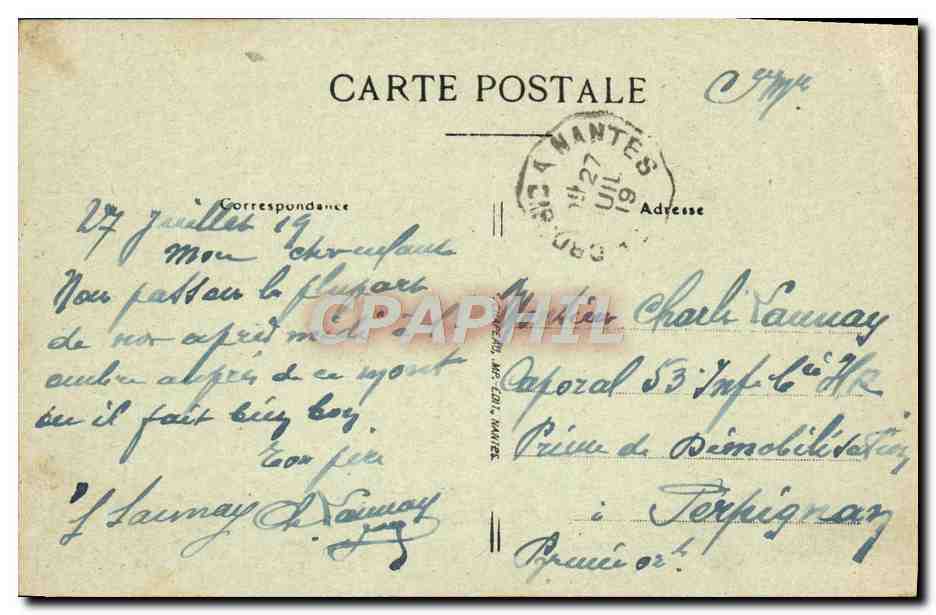 CARTE POSTALE
NANTES
27
19
Correspondance
Adresse
27 Juillet 19
Mon cher enfant
Nou passon la plupart
de nos après midi à l
ombre auprès de ce mont
ou il fait bien bon
Ton père
L Launay Ch Launay
Monsieur Charle Launay
Caporal 53 Inf Cie HR
Prime de Démobilisation
à Perpignan
CHAPEAU, IMP.-EDIT., NANTES
CPAPHIL